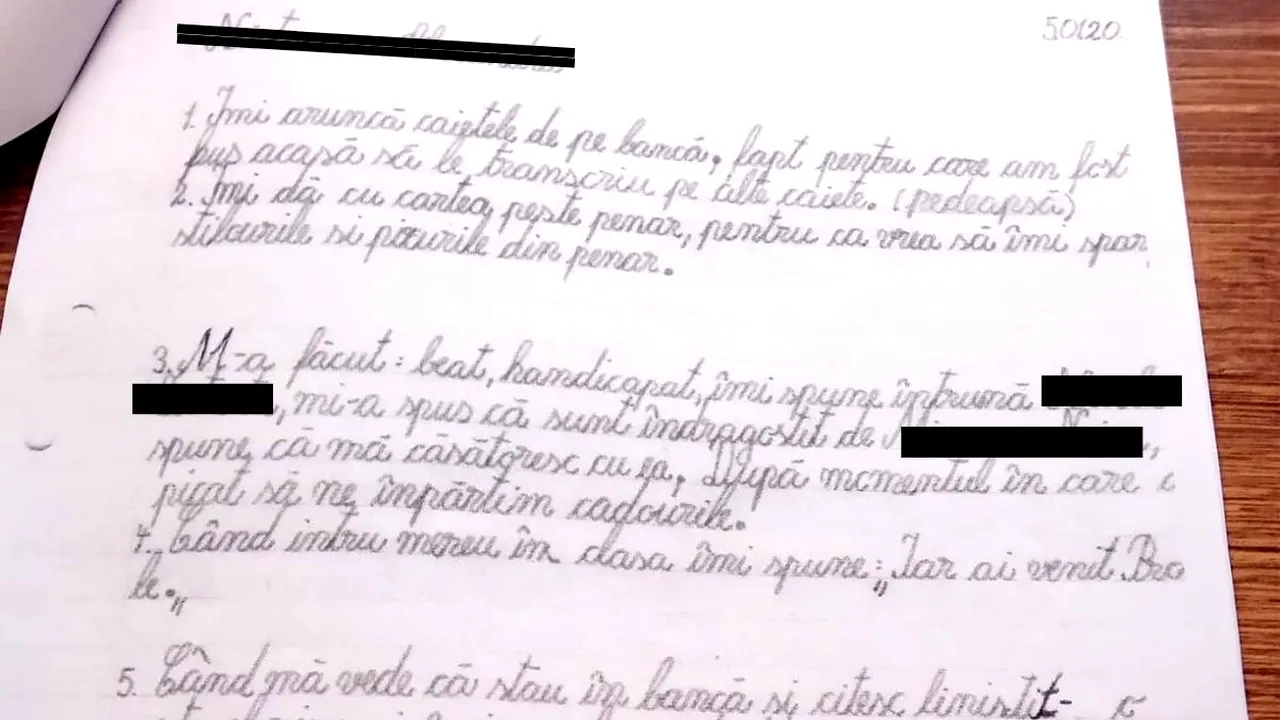 50120
1. Îmi aruncă caietele de pe bancă, fapt pentru care am fost
pus acasă să le transcriu pe alte caiete. (pedeapsă)
2. Îmi dă cu cartea peste penar, pentru ca vrea să îmi spar
stilourile si pixurile din penar.
3. M-a făcut: beat, handicapat, îmi spune întruna
, mi-a spus că sunt îndragostit de
spune că mă căsătoresc cu ea, După momentul în care
picat să ne împărtim cadourile.
4. Când intru mereu în clasa îmi spune: „Iar ai venit Bro
le."
5. Când mă vede că stau în bancă și citesc linistit-